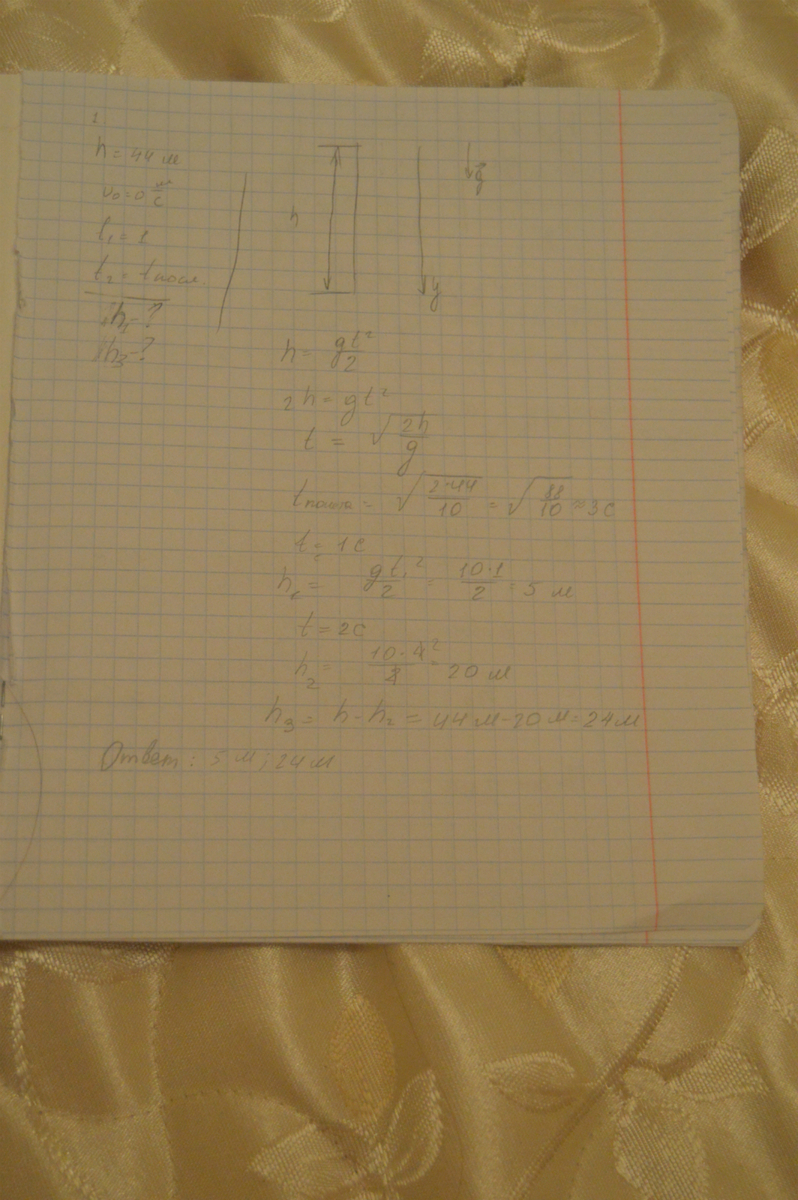 1
h = 44 м
v₀ = 0 м/с
t₁ = 1
t₂ = t посл.
h₁ - ?
h₃ - ?
h
g
y
h = gt²/2
2h = gt²
t = √(2h/g)
= √(2·44/10) = √(88/10) ≈ 3 с
t = 1 с
h₁ = gt₁²/2 = 10·1/2 = 5 м
t = 2 с
h₂ = 10·4²/2 = 20 м
h₃ = h - h₂ = 44 м - 20 м = 24 м
Ответ: 5 м; 24 м